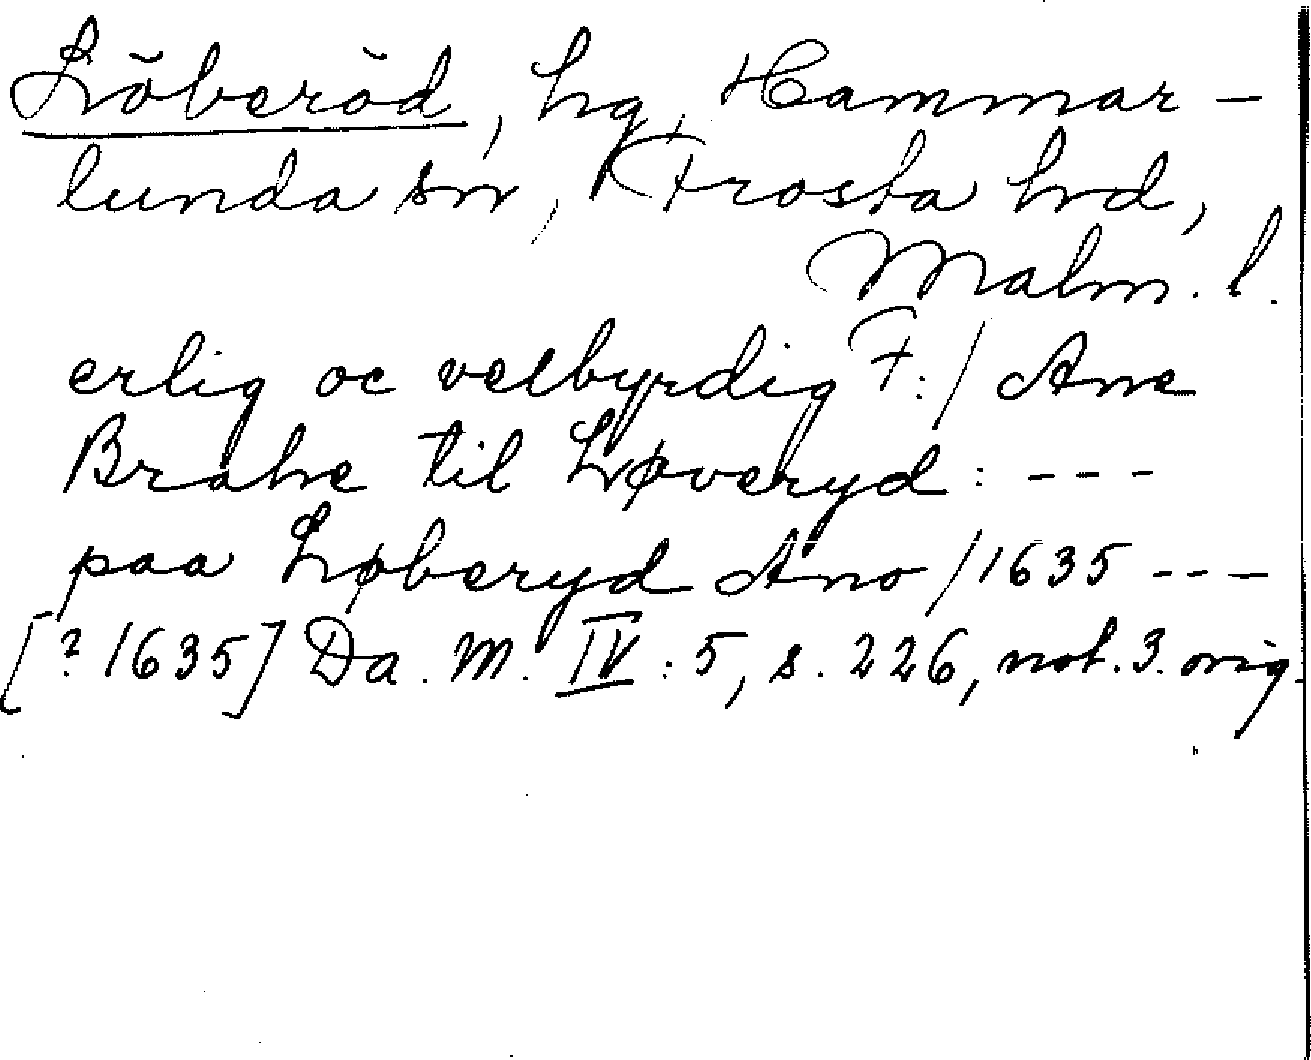 Löberöd, hg, Hammar-
lunda sn, Frosta hrd,
Malm. l.
erlig oc velbyrdig F:/ Ane
Brahe til Løveryd: ---
paa Løberyd Ano /1635 ---
[? 1635] Da. M. IV: 5, s. 226, not. 3. orig.